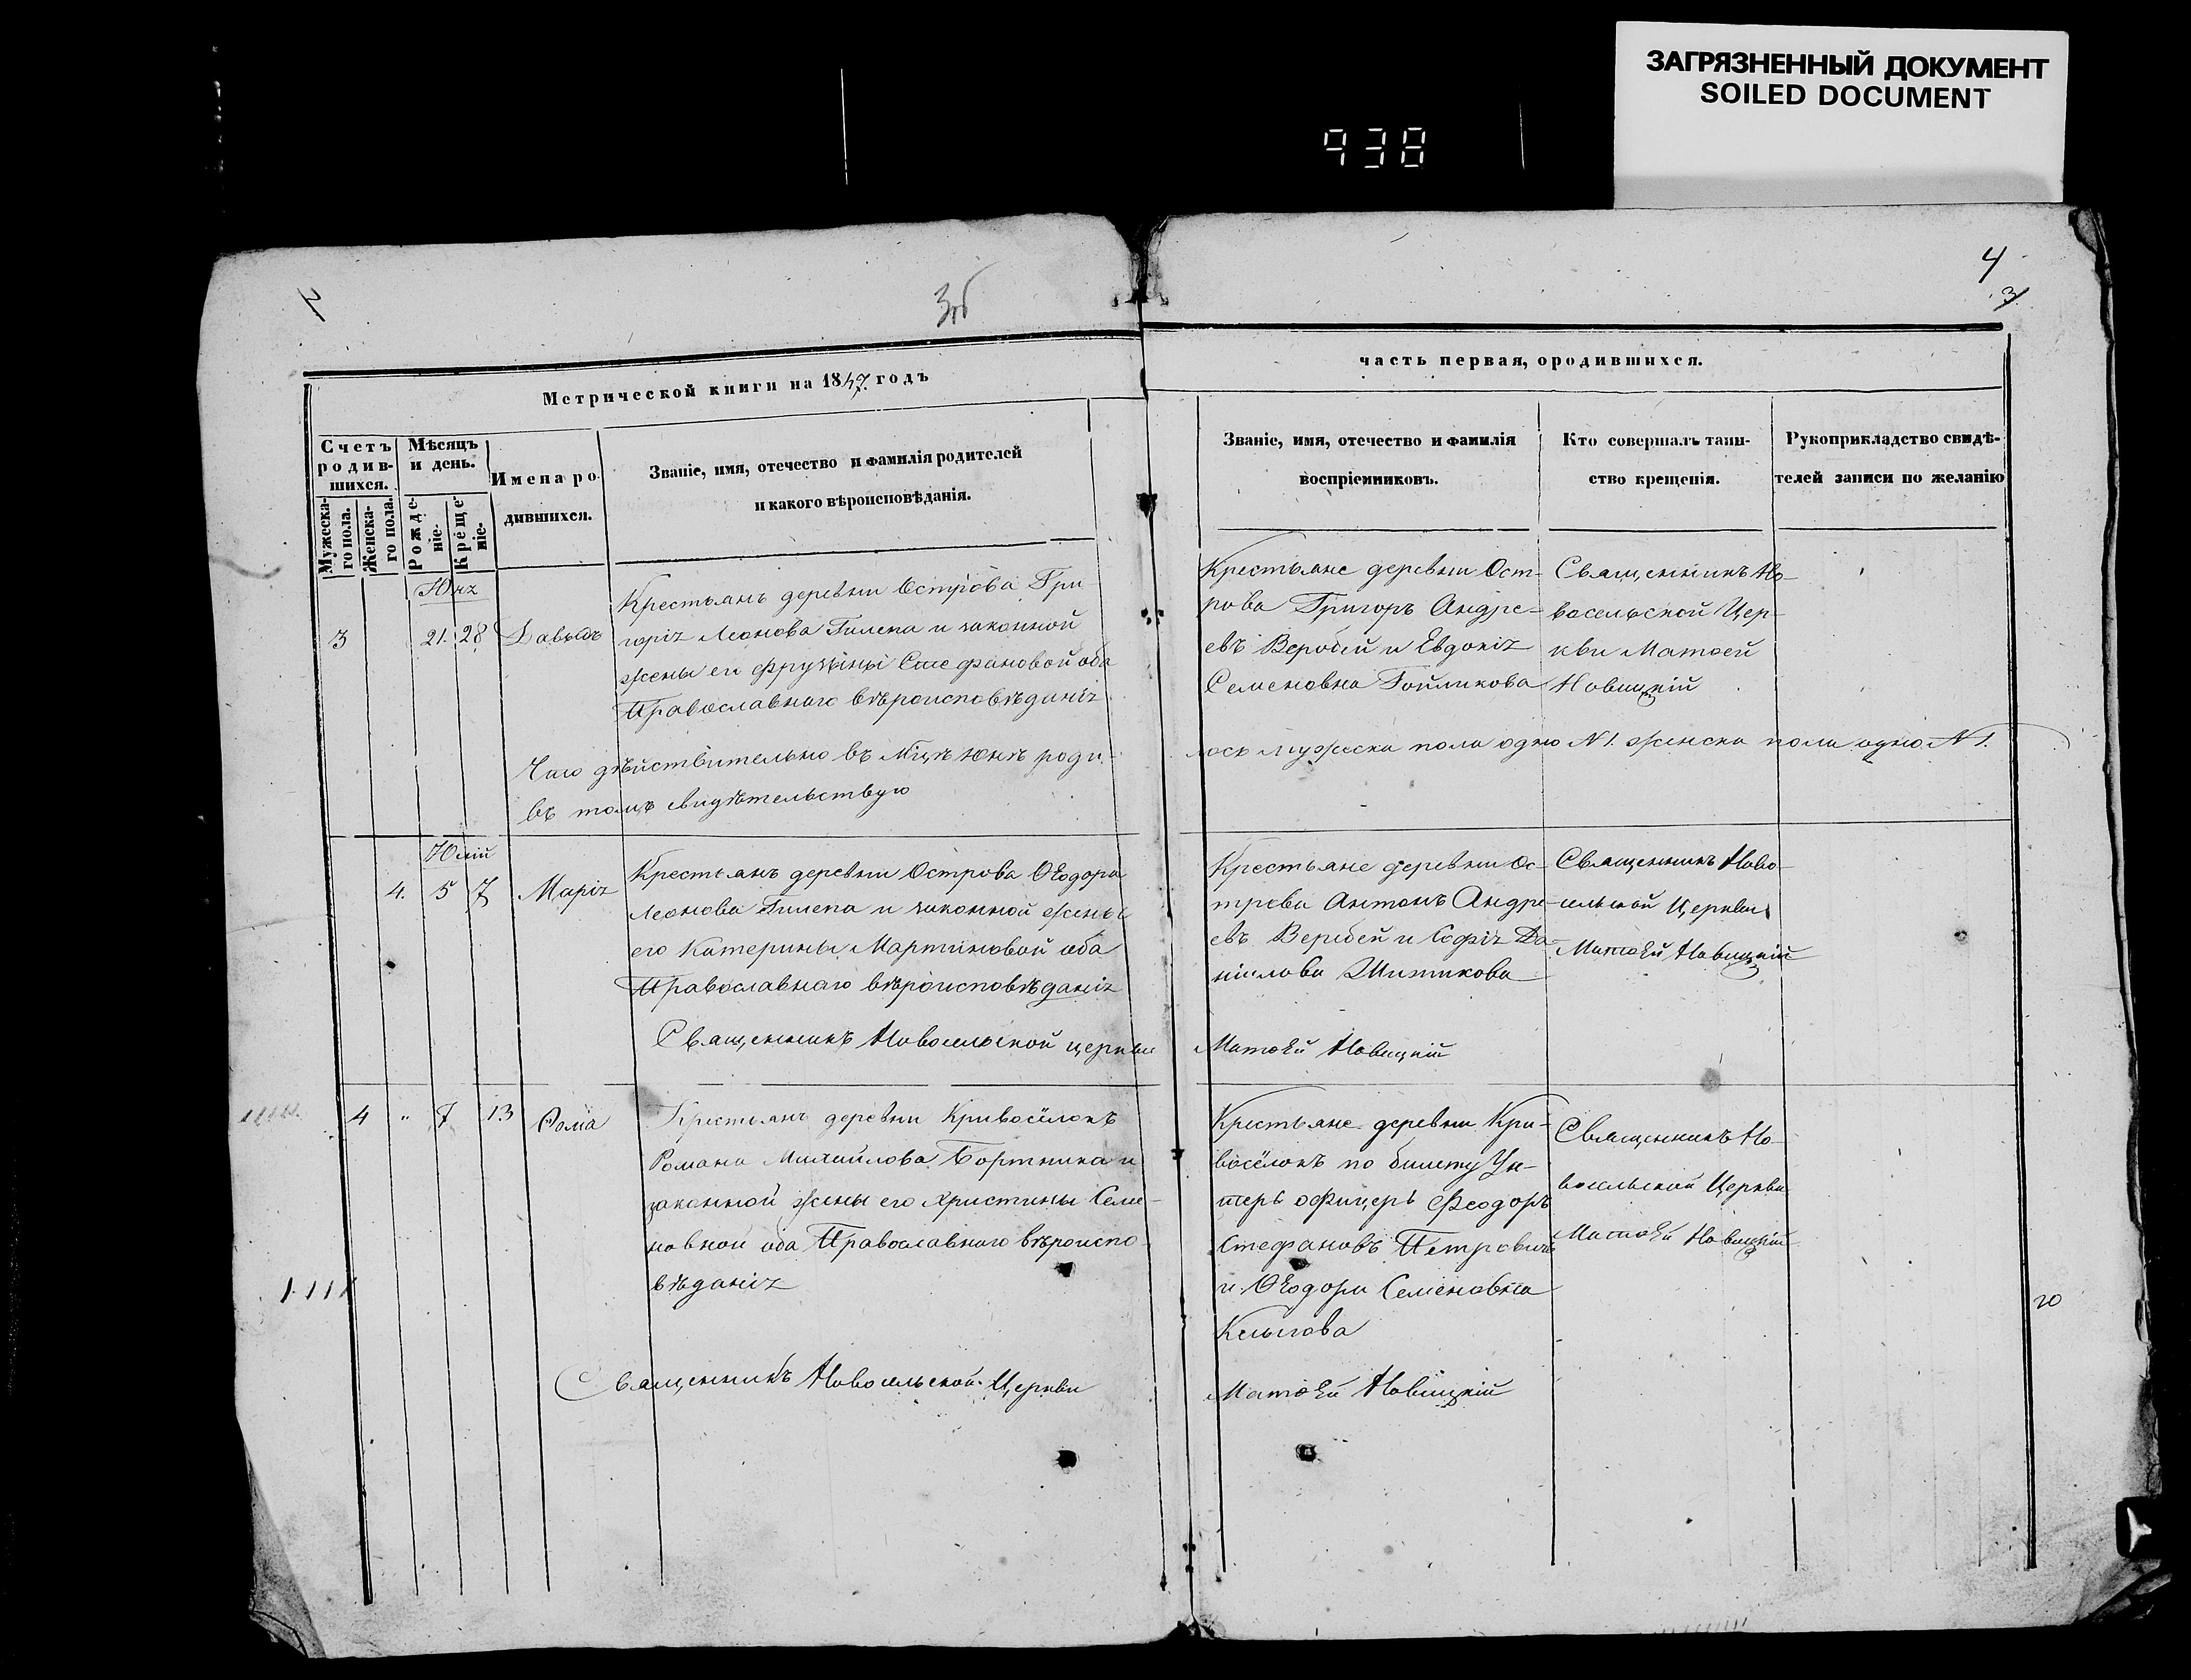 ЗАГРЯЗНЕННЫЙ ДОКУМЕНТ
SOILED DOCUMENT
938
4
3
Метрической книги на 1847. годъ
часть первая, ородившихся.
Счетъ родив-шихся.
Мужеска-го пола.
Женска-го пола.
Мѣсяцъ и день.
Рожде-ніе.
Креще-ніе.
Имена ро-
дившихся.
Званіе, имя, отечество и фамилія родителей
и какого вѣроисповѣданія.
Званіе, имя, отечество и фамилія
воспріемниковъ.
Кто совершалъ таин-
ство крещенія.
Рукоприкладство свидѣ-
телей записи по желанію
3
21. 28
Давыдъ
Крестьянъ деревни Острова Гри
горія Леонова Гилепа и законной
жены его Стефановой оба
Православнаго вѣроисповѣданія
Крестьяне деревни Ост-
рова Григоръ Андре-
евъ Веробей и Евдокія
Семеновна
Священникъ Но-
восельской Цер-
кви Матѳей
Новицкій
Чаго дѣйствительно въ Мцѣ Юнѣ роди-
лось мужеска пола одно N 1. женска пола одно N 1.
въ томъ свидѣтельствую
Юлій
4. 5 7
Марія
Крестьянъ деревни Острова Ѳеодора
Леонова Гилепа и законной жены
его Катерины Мартиновой оба
Православнаго вѣроисповѣданія
Крестьяне деревни Ос-
трова Антонъ Андре-
евъ Веребей и Софія Да-
ніилова Шитикова
Священникъ Ново-
сельской Церкви
Матѳей Новицкій
Священникъ Новосельской церкви
Матѳей Новицкій
4 " 7 13
Крестьянъ деревни Кривосёлокъ
Романа Михайлова Бортника и
законной жены его Христины Семе-
новной оба Православнаго вѣроиспо-
вѣданія
Крестьяне деревни Кри-
восёлокъ по билету Ун-
теръ офицеръ Феодоръ
Стефановъ Петровичъ
и Ѳеодора Семеновна
Священникъ Но-
восельской Церкви
Матѳей Новицкій
20
Священникъ Новосельской Церкви
Матѳей Новицкій